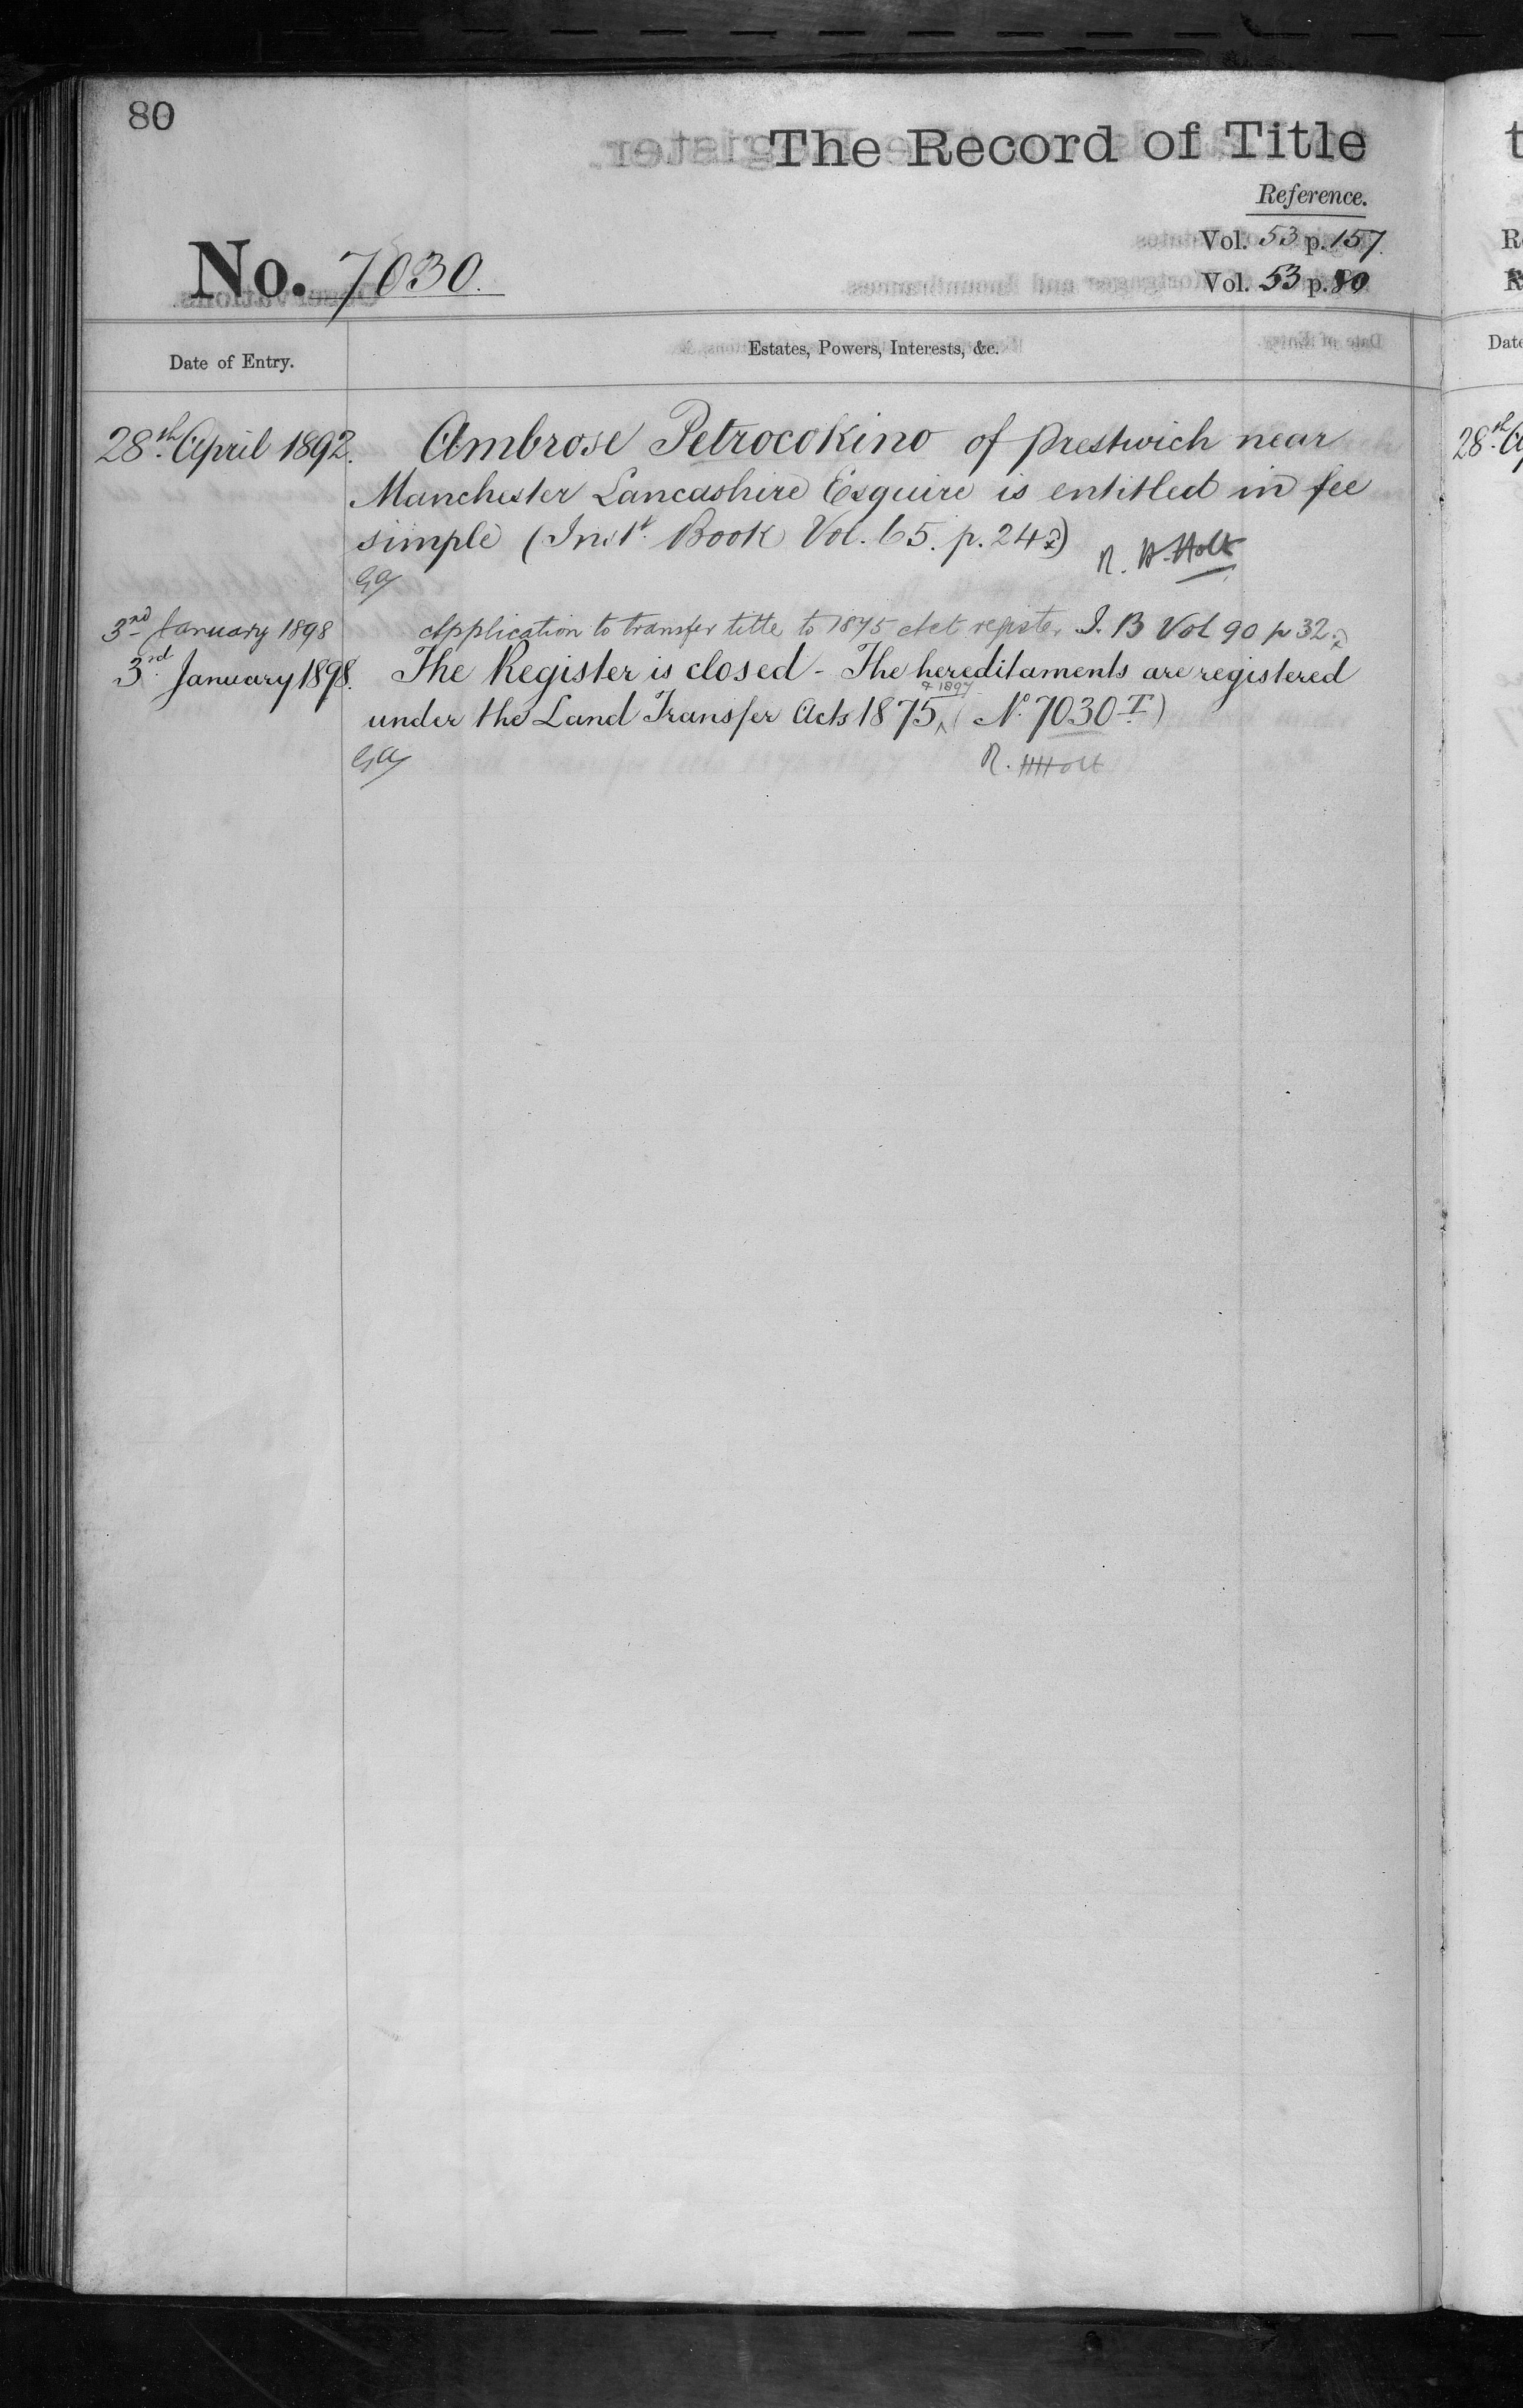 80
The Record of Title
Reference.
Vol. 53 p. 157.
Vol. 53 p. 80
No. 7030.
Date of Entry.
Estates, Powers, Interests, &c.
28th. April 1892.
Ambrose Petrocokino of Prestwich near
Manchester Lancashire Esquire is entitled in fee
simple (Inst. Book Vol. 65. p. 24)
R. H. Holt
3rd January 1898
Application to transfer title to 1875 Act register I. B Vol 90 p 32
3rd. January 1898.
The Register is closed - The hereditaments are registered
& 1897
under the Land Transfer Acts 1875 (No. 7030 T)
R. HHolt